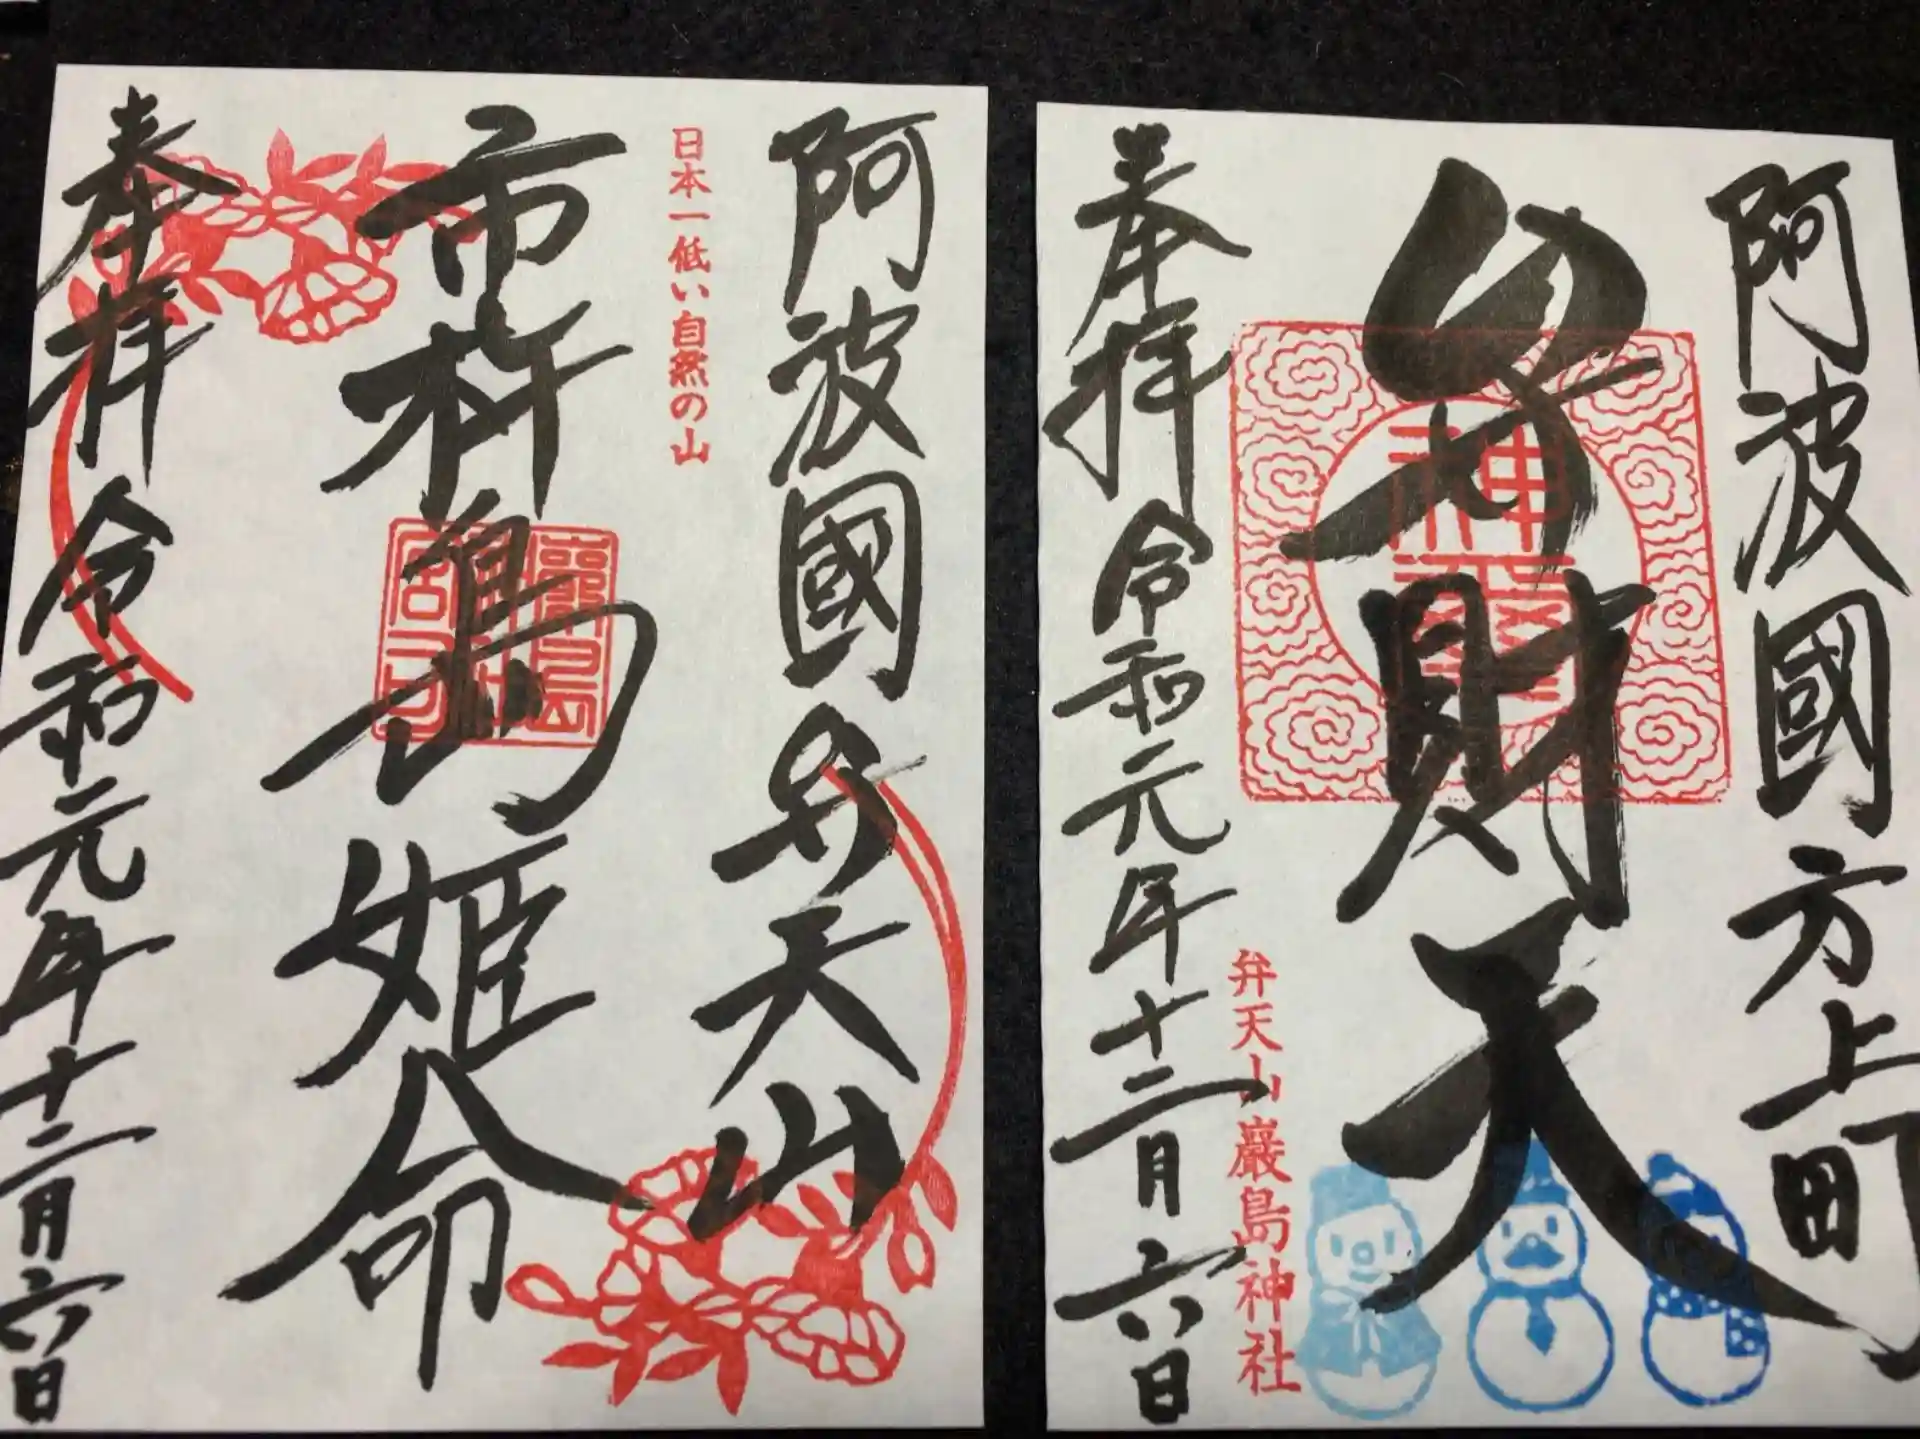 阿波國弁天山
日本一低い自然の山
市杵島姫命
奉拝 令和元年十二月六日
阿波國方上町
弁財天
弁天山巌島神社
奉拝 令和元年十二月六日